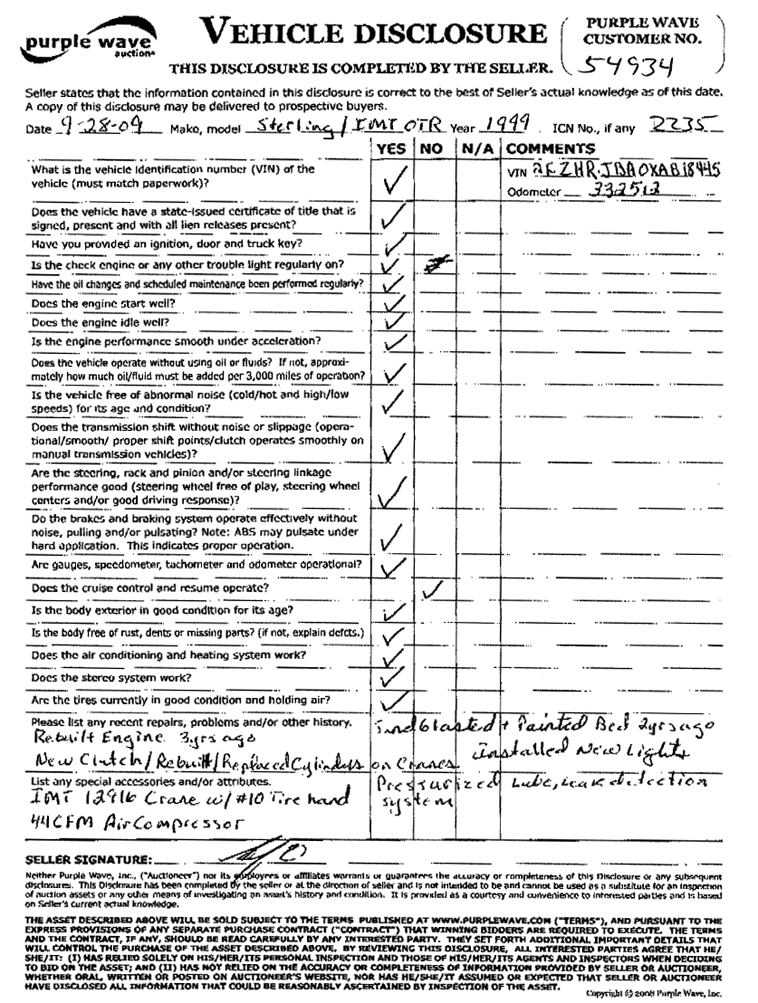 purple wave
auction®
VEHICLE DISCLOSURE
THIS DISCLOSURE IS COMPLETED BY THE SELLER.
PURPLE WAVE
CUSTOMER NO.
54934
Seller states that the information contained in this disclosure is correct to the best of Seller's actual knowledge as of this date.
A copy of this disclosure may be delivered to prospective buyers.
Date 9-28-09 Make, model Sterling/IMT OTR Year 1999 . ICN No., if any 2235
YES NO N/A COMMENTS
What is the vehicle identification number (VIN) of the
vehicle (must match paperwork)?
VIN 2FZHRJBA0XAB18445
Odometer 332512
Does the vehicle have a state-issued certificate of title that is
signed, present and with all lien releases present?
Have you provided an ignition, door and truck key?
Is the check engine or any other trouble light regularly on?
Have the oil changes and scheduled maintenance been performed regularly?
Does the engine start well?
Does the engine idle well?
Is the engine performance smooth under acceleration?
Does the vehicle operate without using oil or fluids? If not, approxi-
mately how much oil/fluid must be added per 3,000 miles of operation?
Is the vehicle free of abnormal noise (cold/hot and high/low
speeds) for its age and condition?
Does the transmission shift without noise or slippage (opera-
tional/smooth/ proper shift points/clutch operates smoothly on
manual transmission vehicles)?
Are the steering, rack and pinion and/or steering linkage
performance good (steering wheel free of play, steering wheel
centers and/or good driving response)?
Do the brakes and braking system operate effectively without
noise, pulling and/or pulsating? Note: ABS may pulsate under
hard application. This indicates proper operation.
Are gauges, speedometer, tachometer and odometer operational?
Does the cruise control and resume operate?
Is the body exterior in good condition for its age?
Is the body free of rust, dents or missing parts? (if not, explain defcts.)
Does the air conditioning and heating system work?
Does the stereo system work?
Are the tires currently in good condition and holding air?
Please list any recent repairs, problems and/or other history.
Sandblasted + Painted Bed 2yrs ago
Rebuilt Engine 3yrs ago
Installed New Lights
New Clutch/Rebuilt/Replaced Cylinders on Cranes
List any special accessories and/or attributes.
Pressurized Lube, Leak detection
IMT 12916 Crane w/ #10 Tire hand
system
44CFM Air Compressor
SELLER SIGNATURE:
Neither Purple Wave, Inc., ("Auctioneer") nor its employees or affiliates warrants or guarantees the accuracy or completeness of this Disclosure or any subsequent
disclosures. This Disclosure has been completed by the seller or at the direction of seller and is not intended to be and cannot be used as a substitute for an inspection
of auction assets or any other means of investigating an asset's history and condition. It is provided as a courtesy and convenience to interested parties and is based
on Seller's current actual knowledge.
THE ASSET DESCRIBED ABOVE WILL BE SOLD SUBJECT TO THE TERMS PUBLISHED AT WWW.PURPLEWAVE.COM ("TERMS"), AND PURSUANT TO THE
EXPRESS PROVISIONS OF ANY SEPARATE PURCHASE CONTRACT ("CONTRACT") THAT WINNING BIDDERS ARE REQUIRED TO EXECUTE. THE TERMS
AND THE CONTRACT, IF ANY, SHOULD BE READ CAREFULLY BY ANY INTERESTED PARTY. THEY SET FORTH ADDITIONAL IMPORTANT DETAILS THAT
WILL CONTROL THE PURCHASE OF THE ASSET DESCRIBED ABOVE. BY REVIEWING THIS DISCLOSURE, ALL INTERESTED PARTIES AGREE THAT HE/
SHE/IT: (I) HAS RELIED SOLELY ON HIS/HER/ITS PERSONAL INSPECTION AND THOSE OF HIS/HER/ITS AGENTS AND INSPECTORS WHEN DECIDING
TO BID ON THE ASSET; AND (II) HAS NOT RELIED ON THE ACCURACY OR COMPLETENESS OF INFORMATION PROVIDED BY SELLER OR AUCTIONEER,
WHETHER ORAL, WRITTEN OR POSTED ON AUCTIONEER'S WEBSITE, NOR HAS HE/SHE/IT ASSUMED OR EXPECTED THAT SELLER OR AUCTIONEER
HAVE DISCLOSED ALL INFORMATION THAT COULD BE REASONABLY ASCERTAINED BY INSPECTION OF THE ASSET.
Copyright © 2008 Purple Wave, Inc.